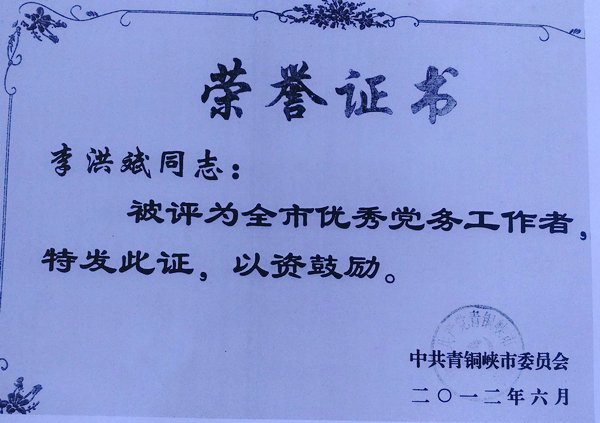 荣誉证书
李洪斌同志：
被评为全市优秀党务工作者，
特发此证，以资鼓励。
中共青铜峡市委员会
二〇一二年六月